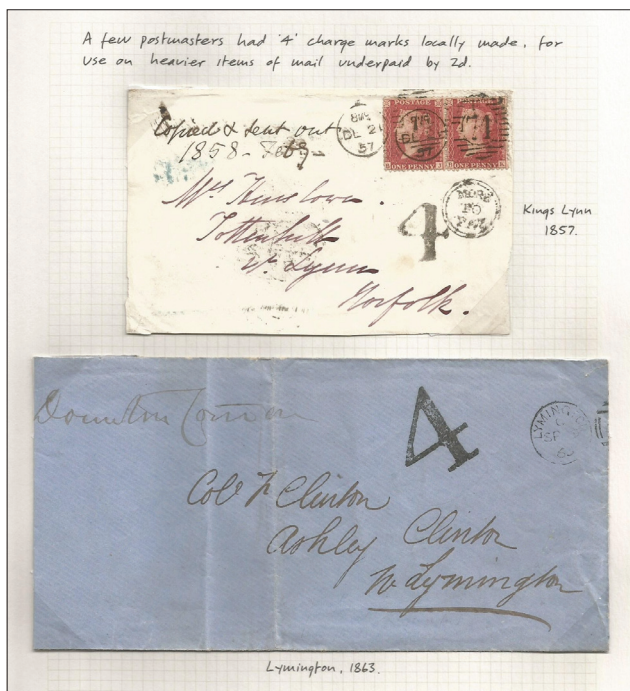 A few postmasters had '4' charge marks locally made, for
use on heavier items of mail underpaid by 2d.
Copied & sent out
1858 - Feb
DE 21
57
DE
57
POSTAGE
POSTAGE
ONE PENNY
ONE PENNY
Mrs Henslowe.
Tottenhill
nr Lynn
Norfolk.
4
MORE
TO
PAY
Kings Lynn
1857.
4
LYMINGTON
SP
63
Downton Common
Col H Clinton
Ashley Clinton
nr Lymington
Lymington, 1863.